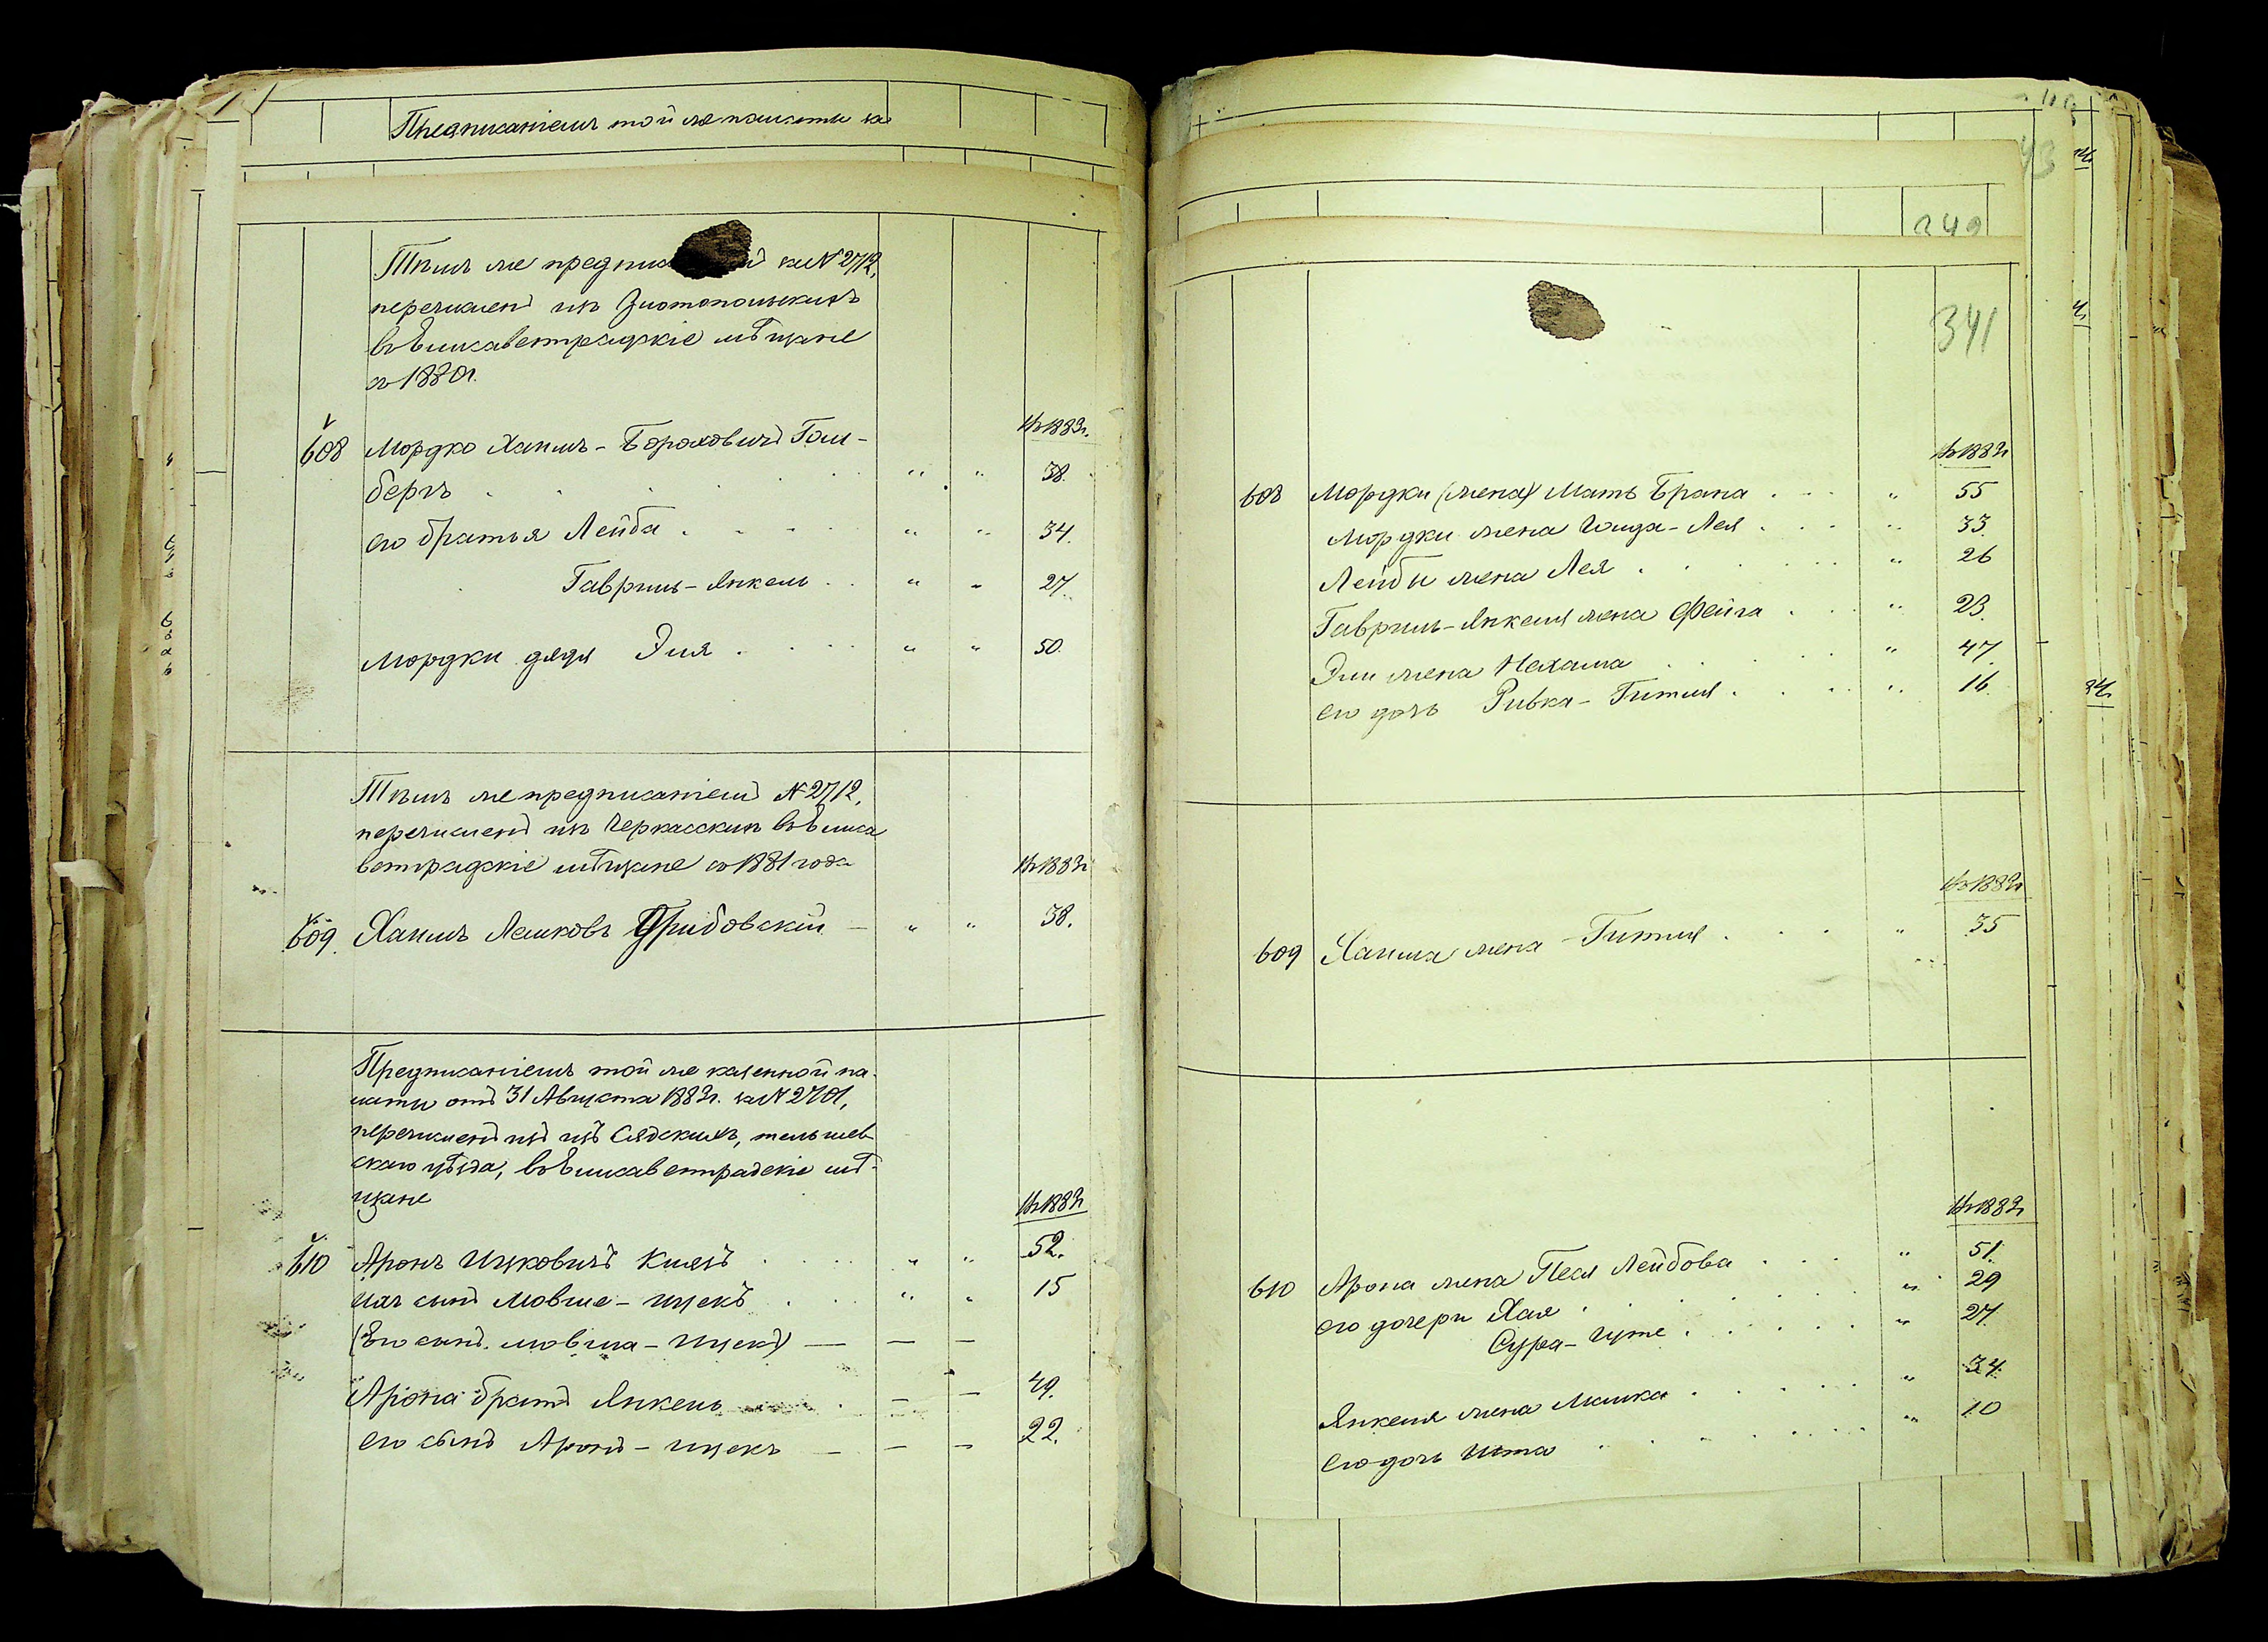 Предписаніемъ той же палаты за
Тѣмъ же предпис за № 2712,
перечисленъ изъ Златопольскихъ
въ Елисаветградскіе мѣщане
съ 1880 г.
Въ 1883 г.
608 Мордко Хаимъ-Бороховичъ Гольд-
бергъ . . . . . " " 38.
его братья Лейба . . . . " " 34.
Гавриль-Янкель . . " " 27.
Мордки дядя Эля . . . . " " 50.
Тѣмъ же предписаніемъ № 2712,
перечисленъ изъ Черкасскихъ въ Елиса
ветградскіе мѣщане съ 1881 года
Въ 1883 г.
609. Хаимъ Лейковъ Грибовскій — " " 38.
Предписаніемъ той же казенной па-
латы отъ 31 Августа 1883 г. за № 2701,
перечисленъ изъ Сядскихъ, тельшев-
скаго уѣзда, въ Елисаветградскіе мѣ-
щане
Въ 1883 г.
610 Аронъ Ицковичъ . . . " " 52.
сынъ Мовше-Ицекъ . . . " " 15
(Его сынъ Мовша-Ицекъ) — — —
Арона братъ Янкель . — — 49.
его сынъ Аронъ-Ицекъ — — — 22.
349
341
Въ 1883 г.
608 Мордки (жена) Мать Брана . . . " 55
Мордки жена Лея . . . " 33.
Лейбы жена Лея . . . . . " 26
Гавриль-Янкеля жена Фейга . . . " 23.
Эли жена Нехама . . . . . " 47.
его дочь Ривка-Гитля . . . . " 16.
Въ 1883 г.
609 Хаима жена Гитля . . . . " 35
Въ 1883 г.
610 Арона жена Песя Лейбова . . . " 51.
его дочери Хая . . . . . . " 29
Сура- . . . . . . " 27.
Янкеля жена Машка . . . . . " 34.
его дочь Ита . . . . . . " 10